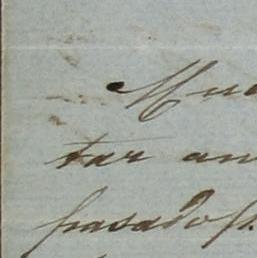 Muc
tar an
pasados.